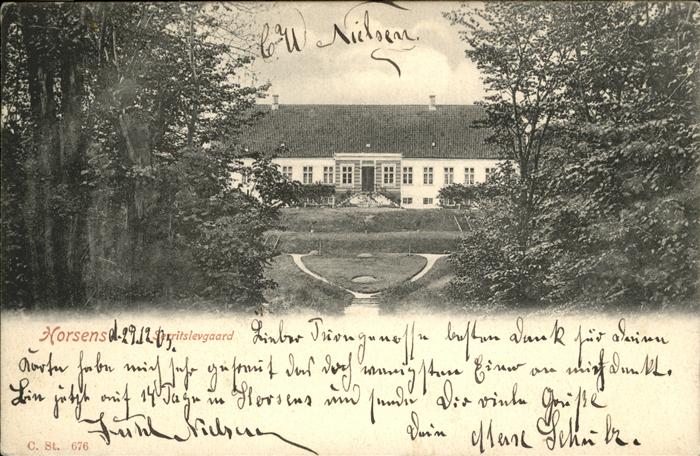 C W Nielsen.
Horsens d. 29.12.03. Serritslevgaard
Lieber besten Dank für Deine
Karte habe mich sehr gefreut das doch wenigsten Einer an mich denkt.
Bin jetzt auf 14 Tage in Horsens und sende Dir viele Grüße
Nielsen Dein Schulz.
C. St. 676